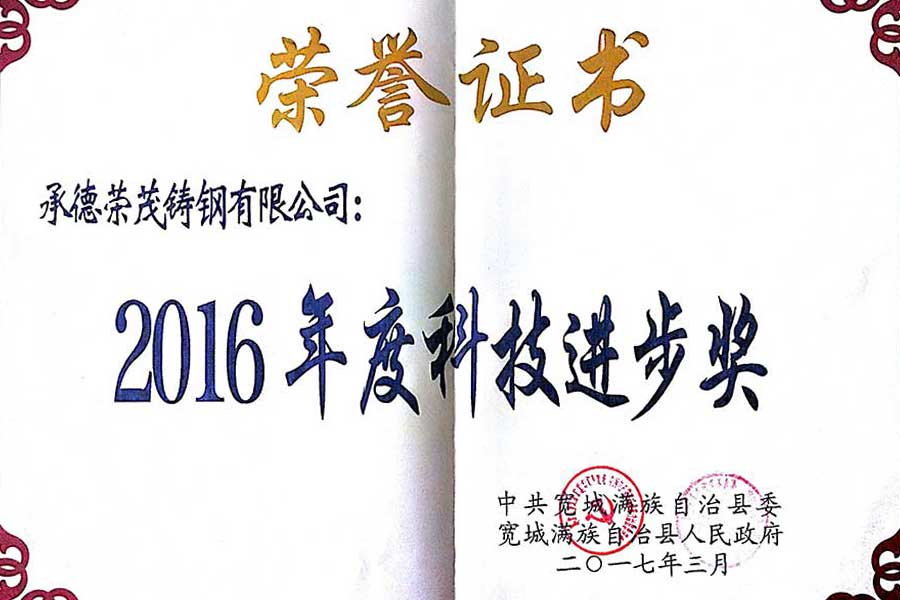 荣誉证书
承德荣茂铸钢有限公司：
2016年度科技进步奖
中共宽城满族自治县委
宽城满族自治县人民政府
二〇一七年三月